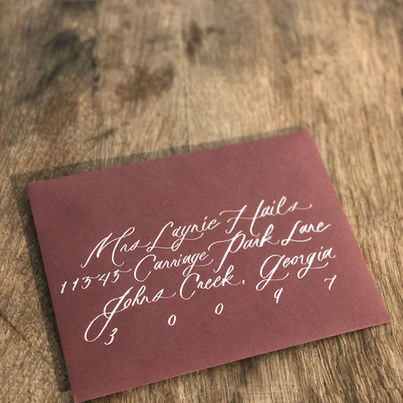 Mrs Laynie Hails
11545 Carriage Park Lane
Johns Creek, Georgia
3 0 0 9 7